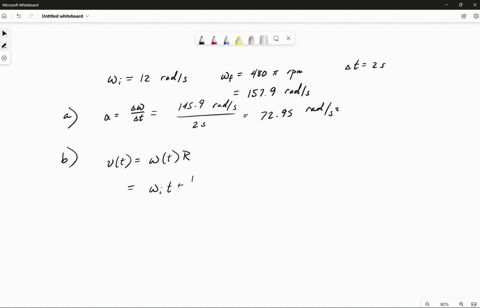 Microsoft Whiteboard
Untitled whiteboard
ωi = 12 rad/s   ωf = 480 π rpm   Δt = 2 s
= 157.9 rad/s
a) α = Δω/Δt = 145.9 rad/s / 2 s = 72.95 rad/s²
b) v(t) = ω(t) R
= ωi t +
80%